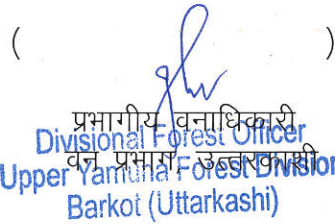 ( )
प्रभागीय वनाधिकारी
Divisional Forest Officer
वन प्रभाग, उत्तरकाशी
Upper Yamuna Forest Division
Barkot (Uttarkashi)